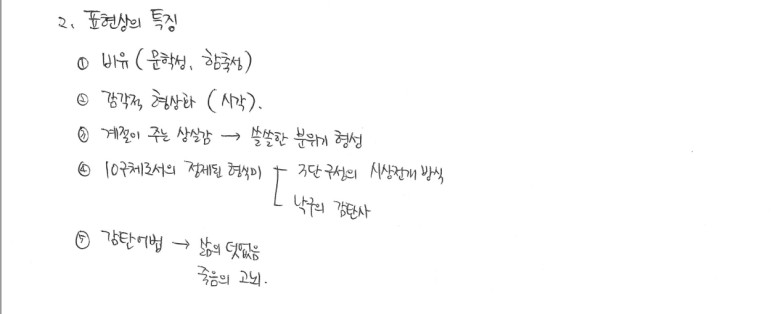 2. 표현상의 특징
① 비유 (문학성, 함축성)
② 감각적 형상화 (시각).
③ 계절이 주는 상실감 → 쓸쓸한 분위기 형성
④ 10구체로서의 정제된 형식미 3단 구성의 시상전개 방식
낙구의 감탄사
⑤ 감탄어법 → 삶의 덧없음
죽음의 고뇌.